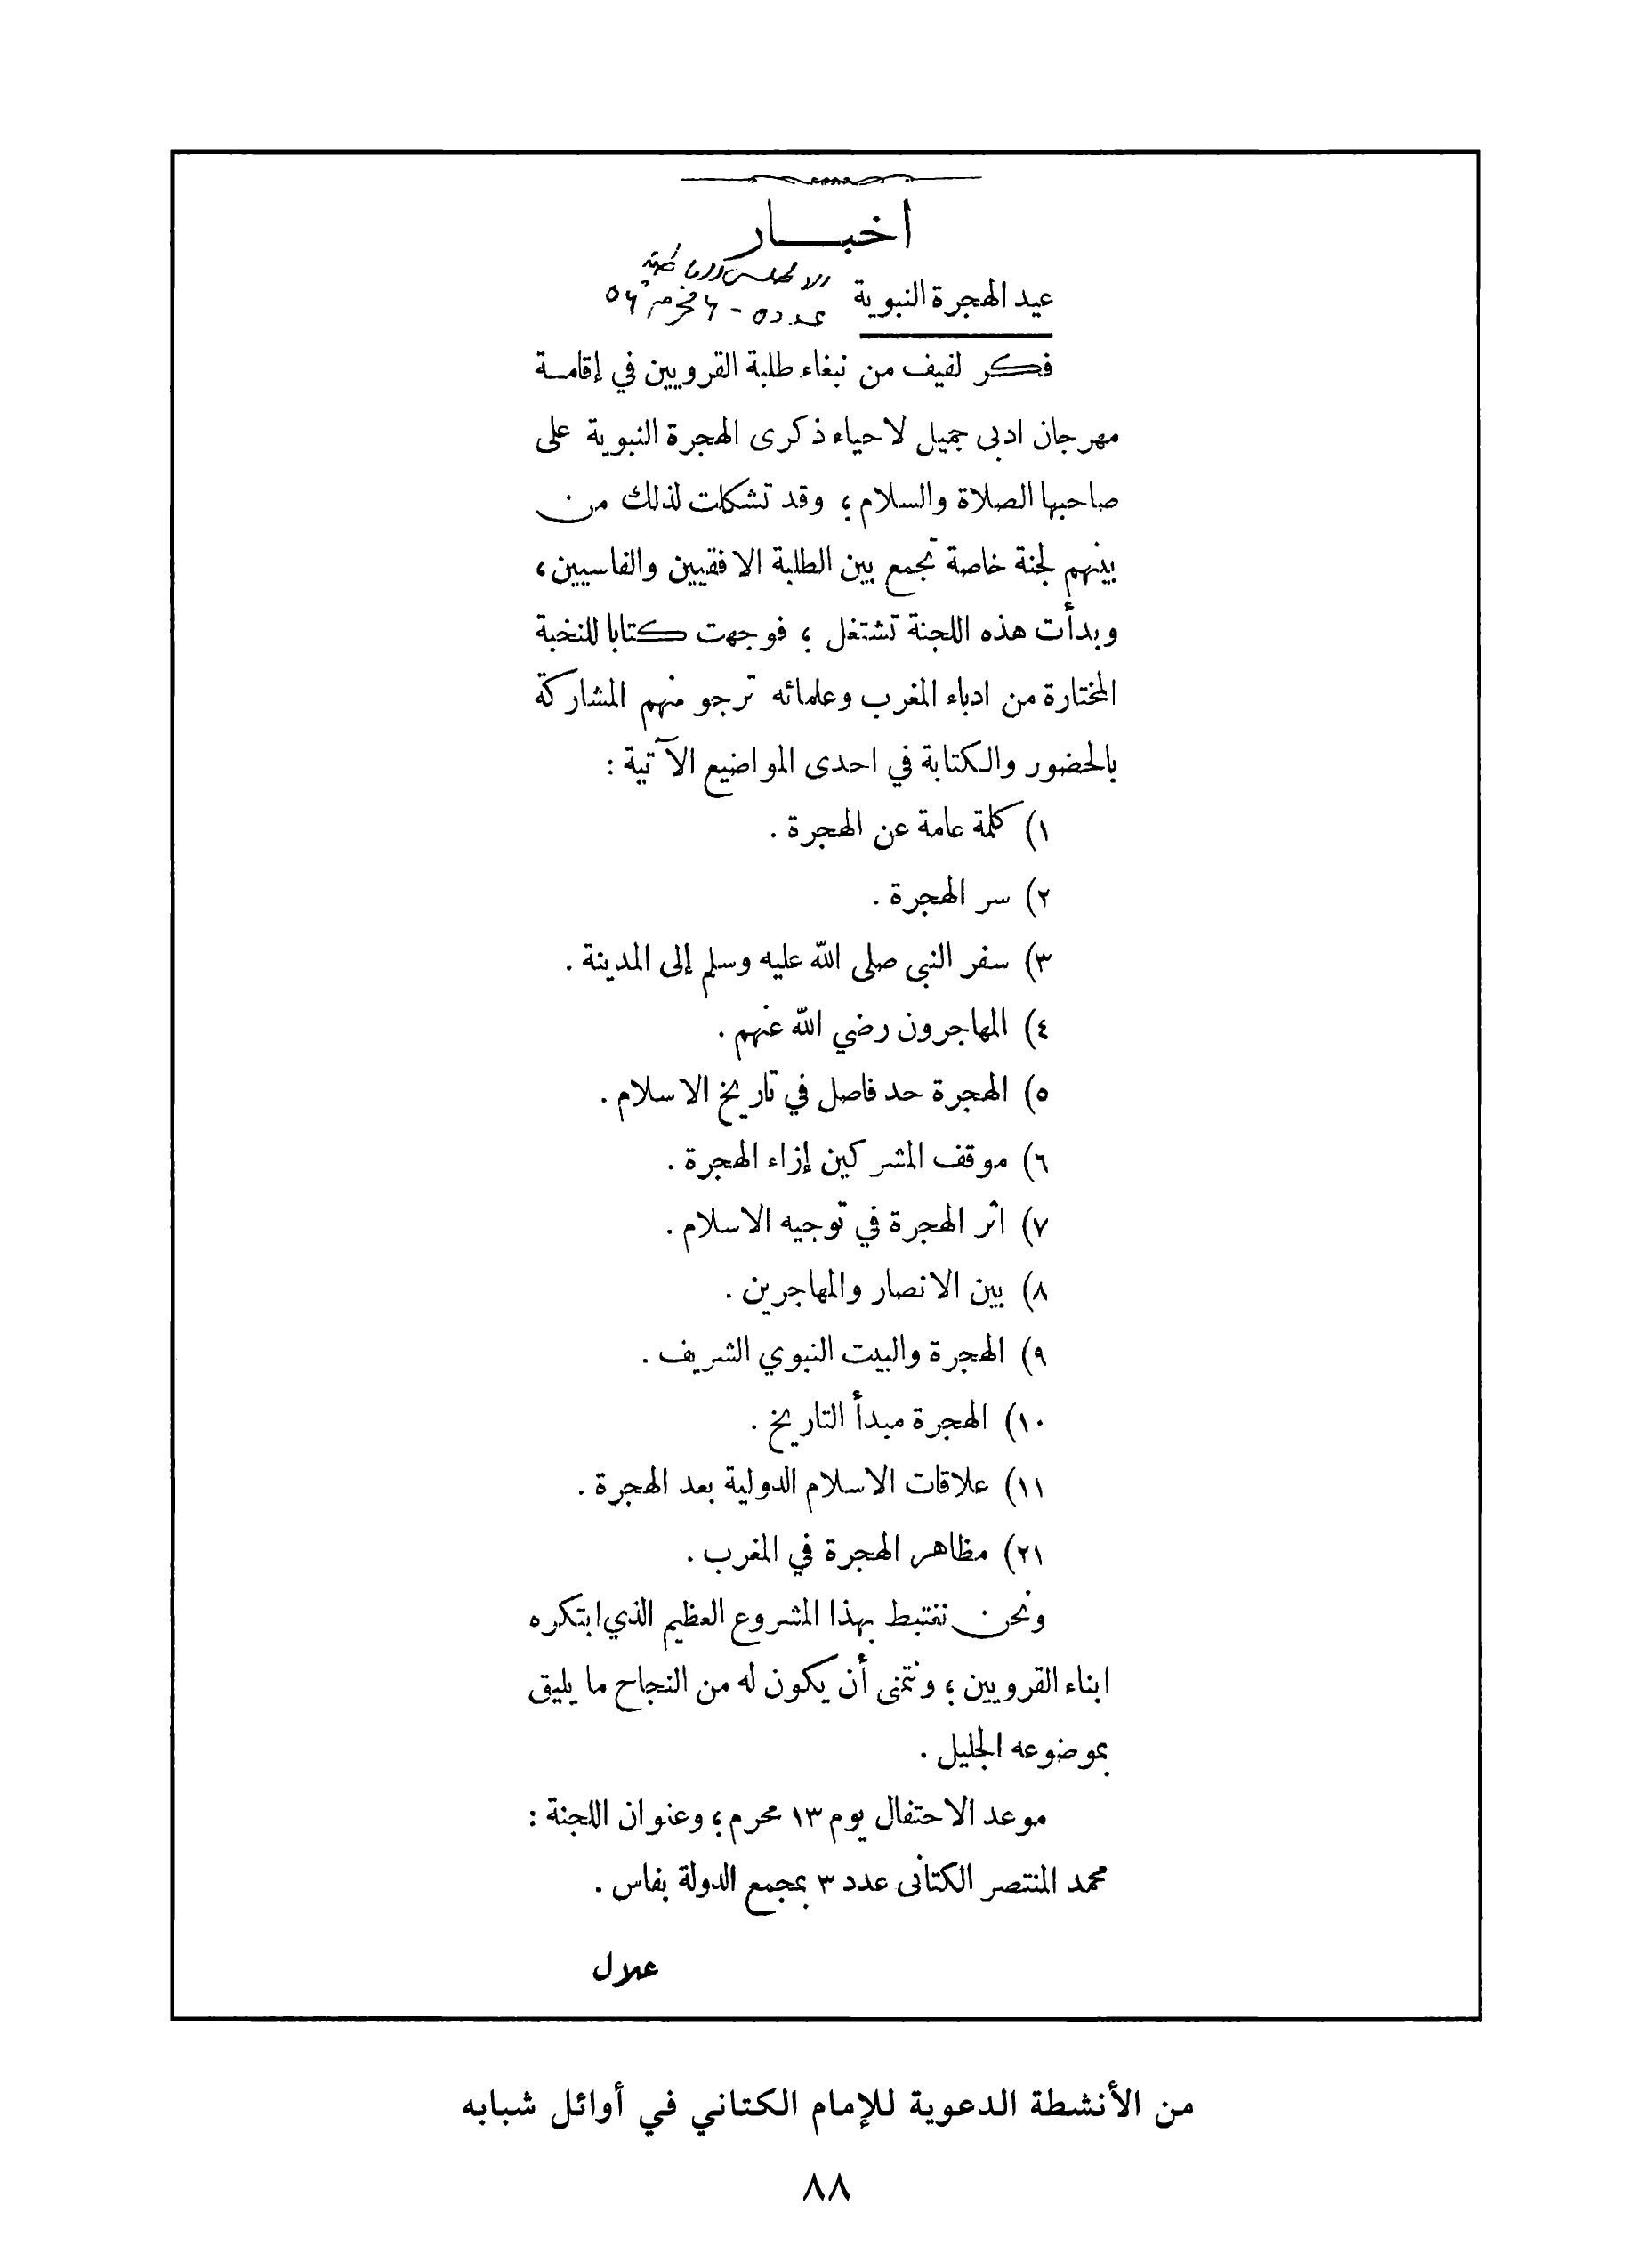 اخبـــار
عيد الهجرة النبوية
عدد ٥ -
فكر لفيف من نبغاء طلبة القرويين في إقامة
مهرجان ادبى جميل لاحياء ذكرى الهجرة النبوية على
صاحبها الصلاة والسلام؛ وقد تشكلت لذلك من
بينهم لجنة خاصة تجمع بين الطلبة الافقيين والفاسيين،
وبدأت هذه اللجنة تشتغل ؛ فوجهت كتابا للنخبة
المختارة من ادباء المغرب وعلمائه ترجو منهم المشاركة
بالحضور والكتابة في احدى المواضيع الآتية :
١) كلمة عامة عن الهجرة .
٢) سر الهجرة .
٣) سفر النبى صلى الله عليه وسلم إلى المدينة .
٤) المهاجرون رضي الله عنهم .
٥) الهجرة حد فاصل في تاريخ الاسلام .
٦) موقف المشركين إزاء الهجرة .
٧) اثر الهجرة في توجيه الاسلام .
٨) بين الانصار والمهاجرين .
٩) الهجرة والبيت النبوي الشريف .
١٠) الهجرة مبدأ التاريخ .
١١) علاقات الاسلام الدولية بعد الهجرة .
١٢) مظاهر الهجرة في المغرب .
ونحن نغتبط بهذا المشروع العظيم الذي ابتكره
ابناء القرويين ؛ ونتمنى أن يكون له من النجاح ما يليق
بموضوعه الجليل .
موعد الاحتفال يوم ١٣ محرم؛ وعنوان اللجنة :
محمد المنتصر الكتانى عدد ٣ بمجمع الدولة بفاس .
علال
من الأنشطة الدعوية للإمام الكتاني في أوائل شبابه
٨٨